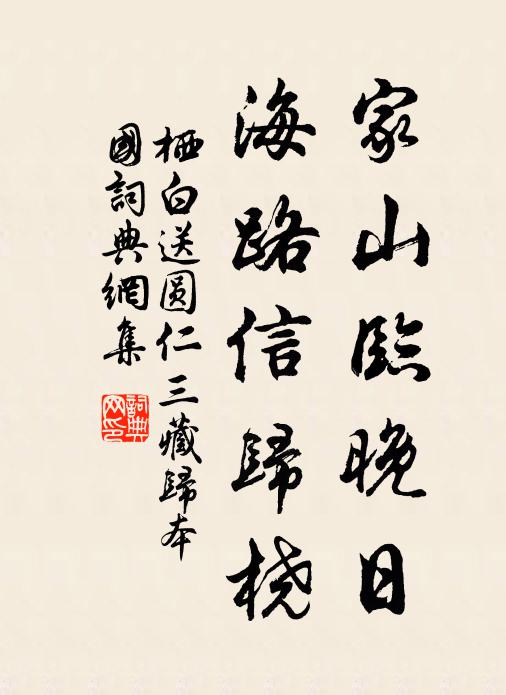 家山臨晚日
海路信歸橈
栖白送圓仁三藏歸本
國詞典網集
詞典
网印